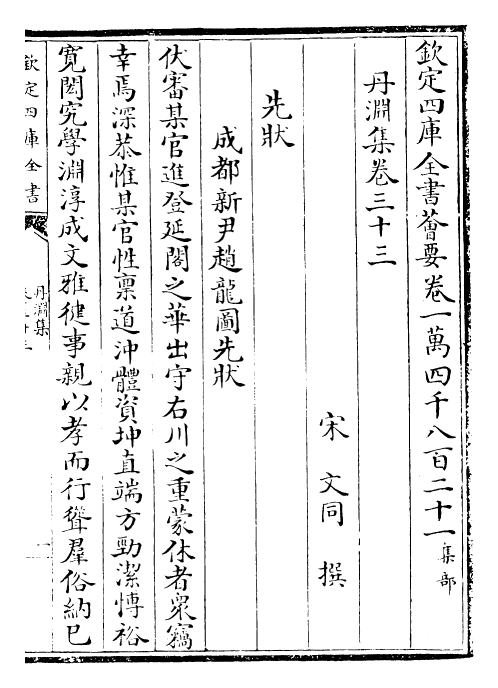 欽定四庫全書薈要卷一萬四千八百二十一集部
丹淵集卷三十三
宋文同撰
先狀
成都新尹趙龍圖先狀
伏審某官進登延閣之華出守右川之重蒙休者衆竊
幸焉深恭惟某官性稟道沖體資坤直端方勁潔慱裕
寛閎究學淵淳成文雅健事親以孝而行聳羣俗納巳
欽定四庫全書
丹淵集